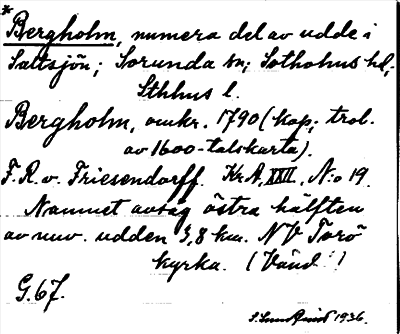 * Bergholm, numera del av udde i
Saltsjön; Sorunda sn; Sotholms hd,
Sthlms l.
Bergholm, omkr. 1790 (kop; trol.
av 1600-talskarta).
F. R. v. Friesendorff. Kr.A, XXII, N:o 19.
Namnet avsåg östra hälften
av nuv. udden 3,8 km. NV Torö
kyrka. (Vänd!)
G. 67.
1936.